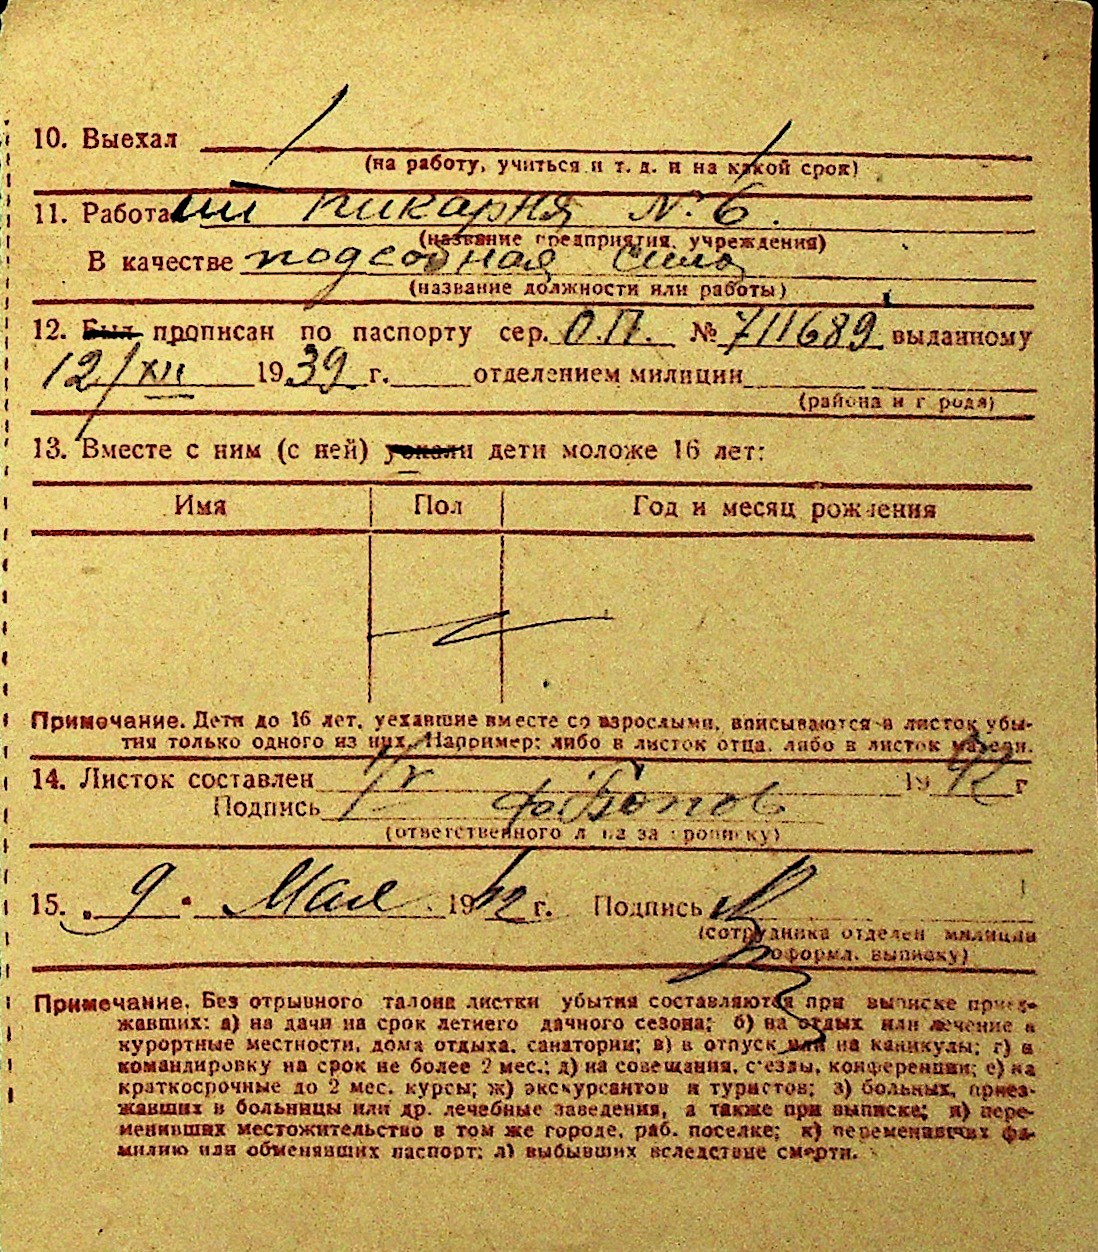 10. Выехал
(на работу, учиться и т. д. и на какой срок)
11. Работа пикарня №6.
(название предприятия, учреждения)
В качестве подсобная сила
(название должности или работы)
12. Был прописан по паспорту сер. О.П. № 711689 выданному
12/XII 1939 г. отделением милиции
(района и города)
13. Вместе с ним (с ней) дети моложе 16 лет:
Имя Пол Год и месяц рождения
Примечание. Дети до 16 лет, уехавшие вместе со взрослыми, вписываются в листок убы-
тия только одного из них. Например: либо в листок отца, либо в листок матери.
14. Листок составлен 1942 г
Подпись
(ответственного лица за прописку)
15. „9“ Мая 1942 г. Подпись
(сотрудника отделен милиции
оформл. выписку)
Примечание. Без отрывного талона листки убытия составляются при выписке приез-
жавших: а) на дачи на срок летнего дачного сезона; б) на отдых или лечение в
курортные местности, дома отдыха, санатории; в) в отпуск или на каникулы; г) в
командировку на срок не более 2 мес.; д) на совещания, съезды, конференции; е) на
краткосрочные до 2 мес. курсы; ж) экскурсантов и туристов; з) больных, приез-
жавших в больницы или др. лечебные заведения, а также при выписке; и) пере-
менивших местожительство в том же городе, раб. поселке; к) переменивших фа-
милию или обменявших паспорт; л) выбывших вследствие смерти.